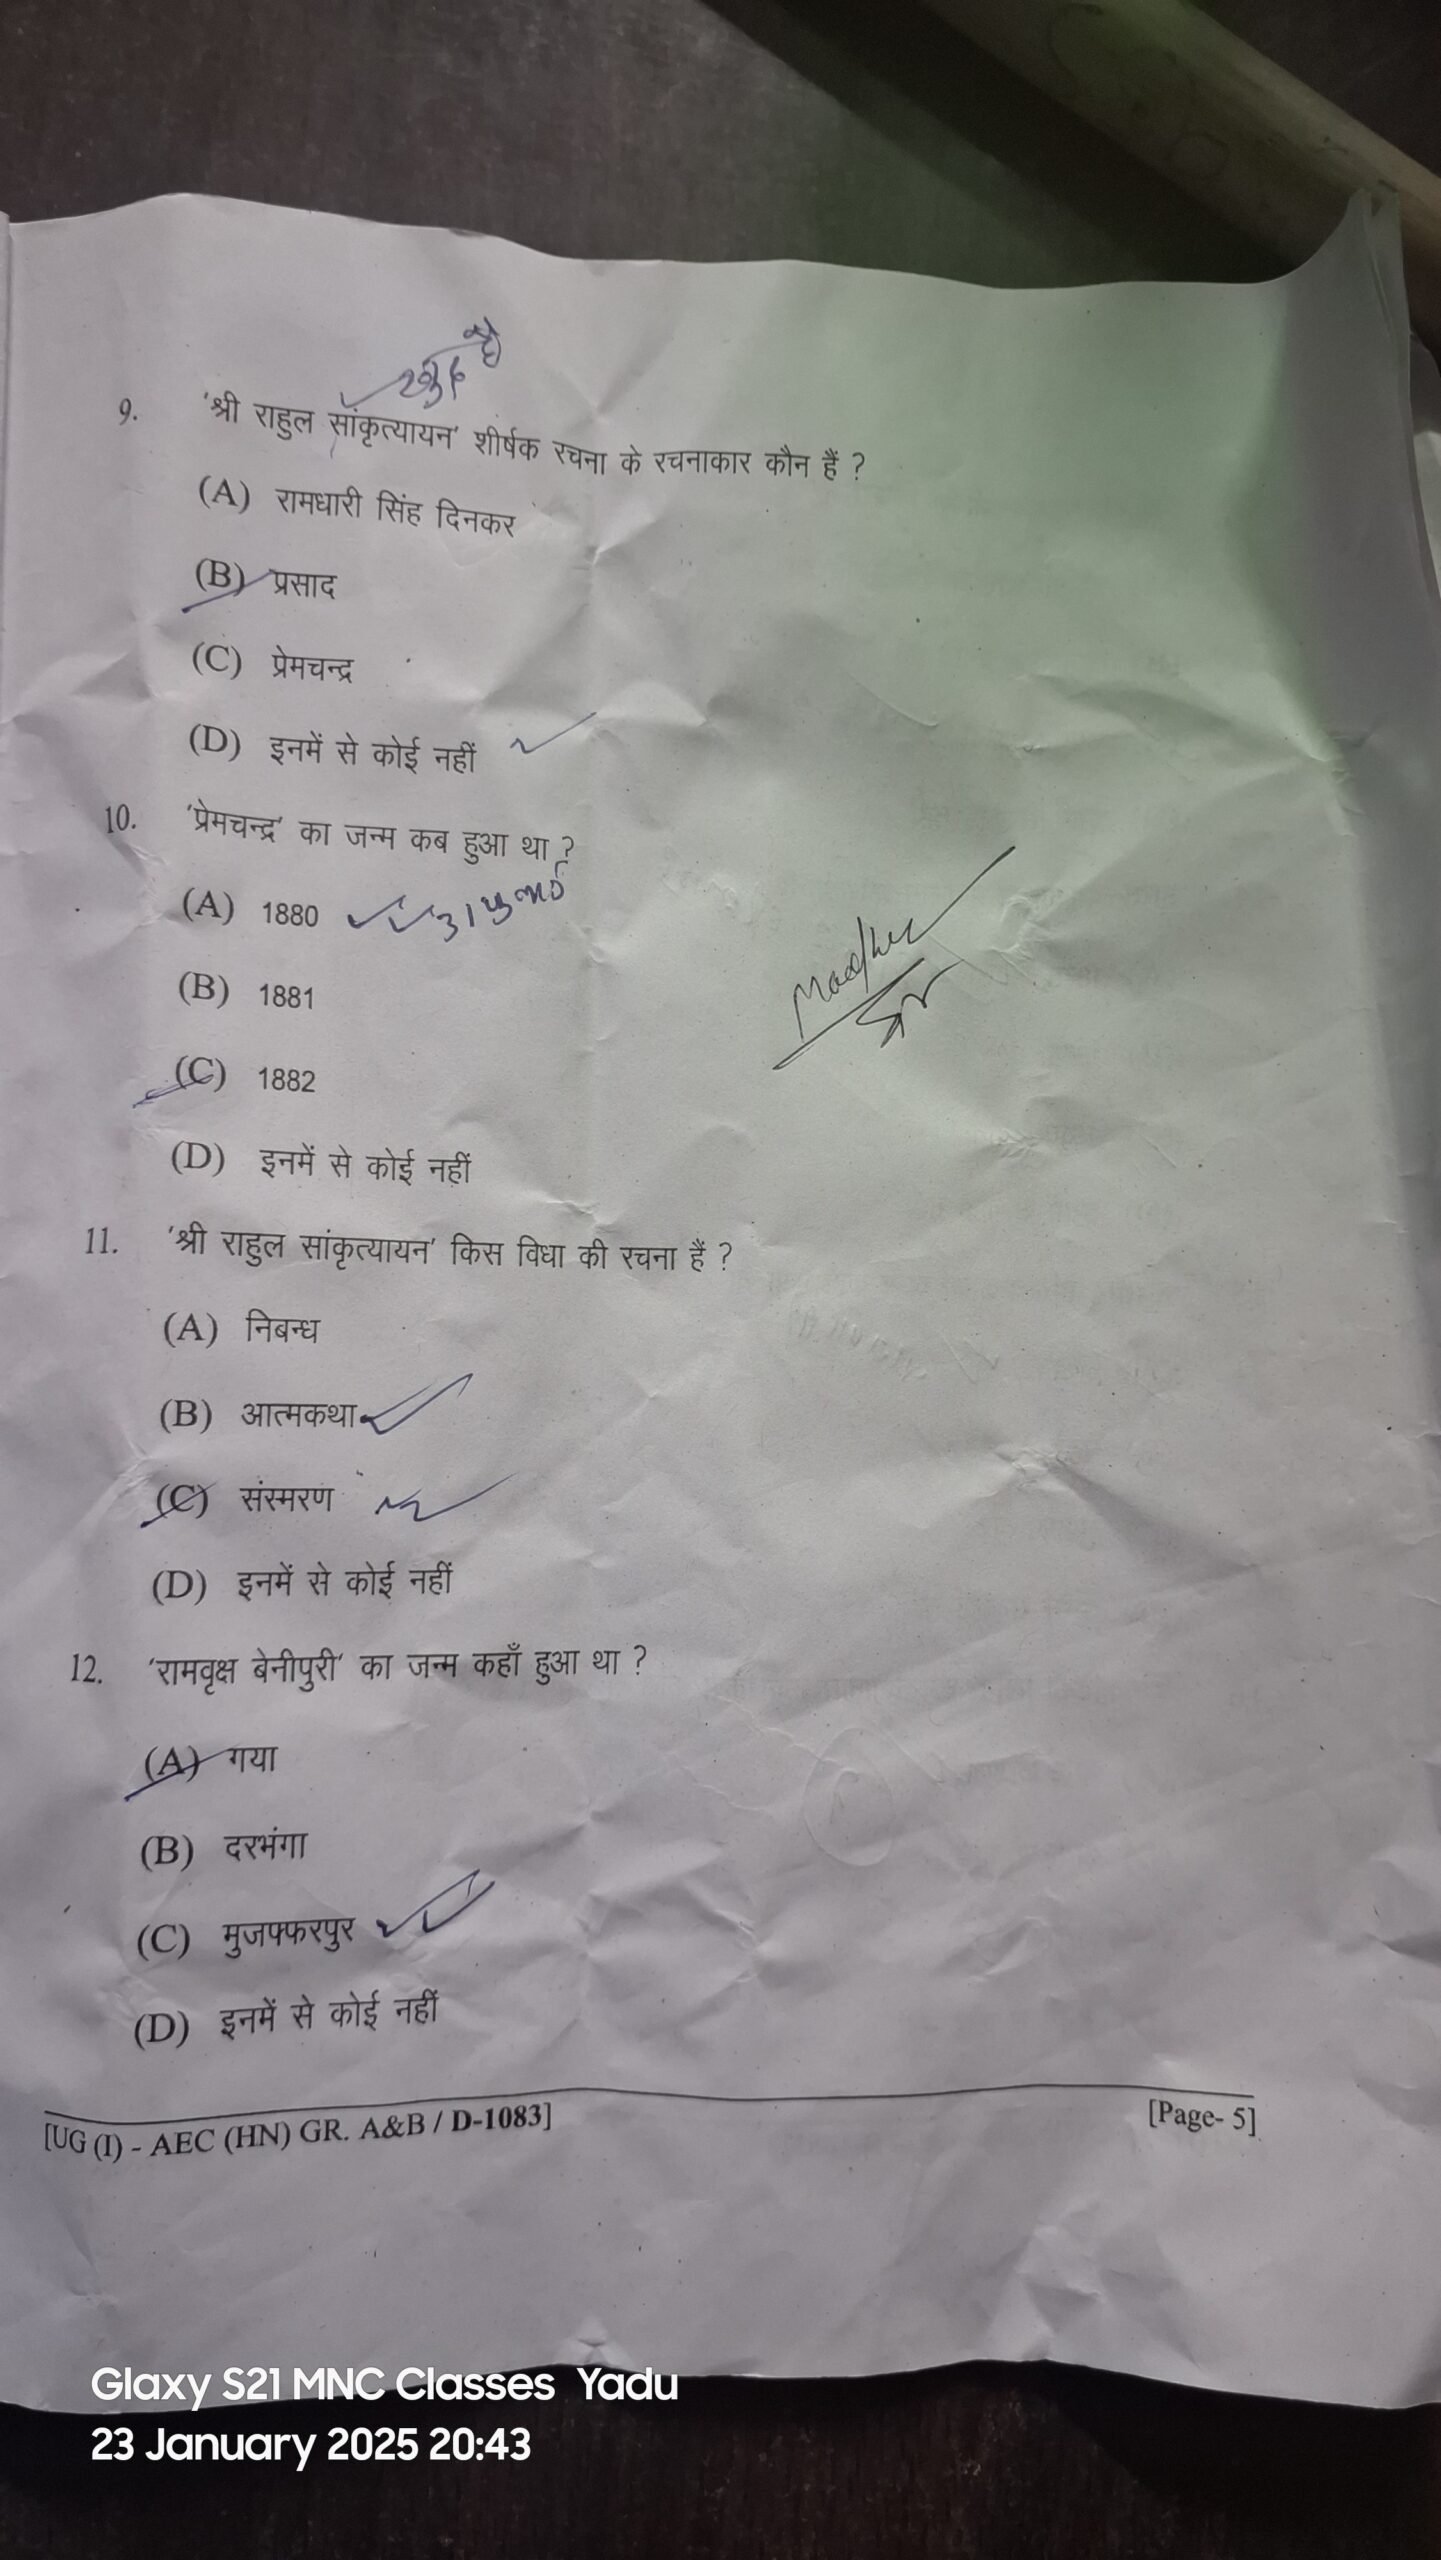 खुद है
9. 'श्री राहुल सांकृत्यायन' शीर्षक रचना के रचनाकार कौन हैं ?
(A) रामधारी सिंह दिनकर
(B) प्रसाद
(C) प्रेमचन्द्र
(D) इनमें से कोई नहीं
10. 'प्रेमचन्द्र' का जन्म कब हुआ था ?
(A) 1880 31 जुलाई
(B) 1881
(C) 1882
(D) इनमें से कोई नहीं
11. 'श्री राहुल सांकृत्यायन' किस विधा की रचना हैं ?
(A) निबन्ध
(B) आत्मकथा
(C) संस्मरण
(D) इनमें से कोई नहीं
12. 'रामवृक्ष बेनीपुरी' का जन्म कहाँ हुआ था ?
(A) गया
(B) दरभंगा
(C) मुजफ्फरपुर
(D) इनमें से कोई नहीं
[UG (I) - AEC (HN) GR. A&B / D-1083] [Page- 5]
Glaxy S21 MNC Classes Yadu
23 January 2025 20:43